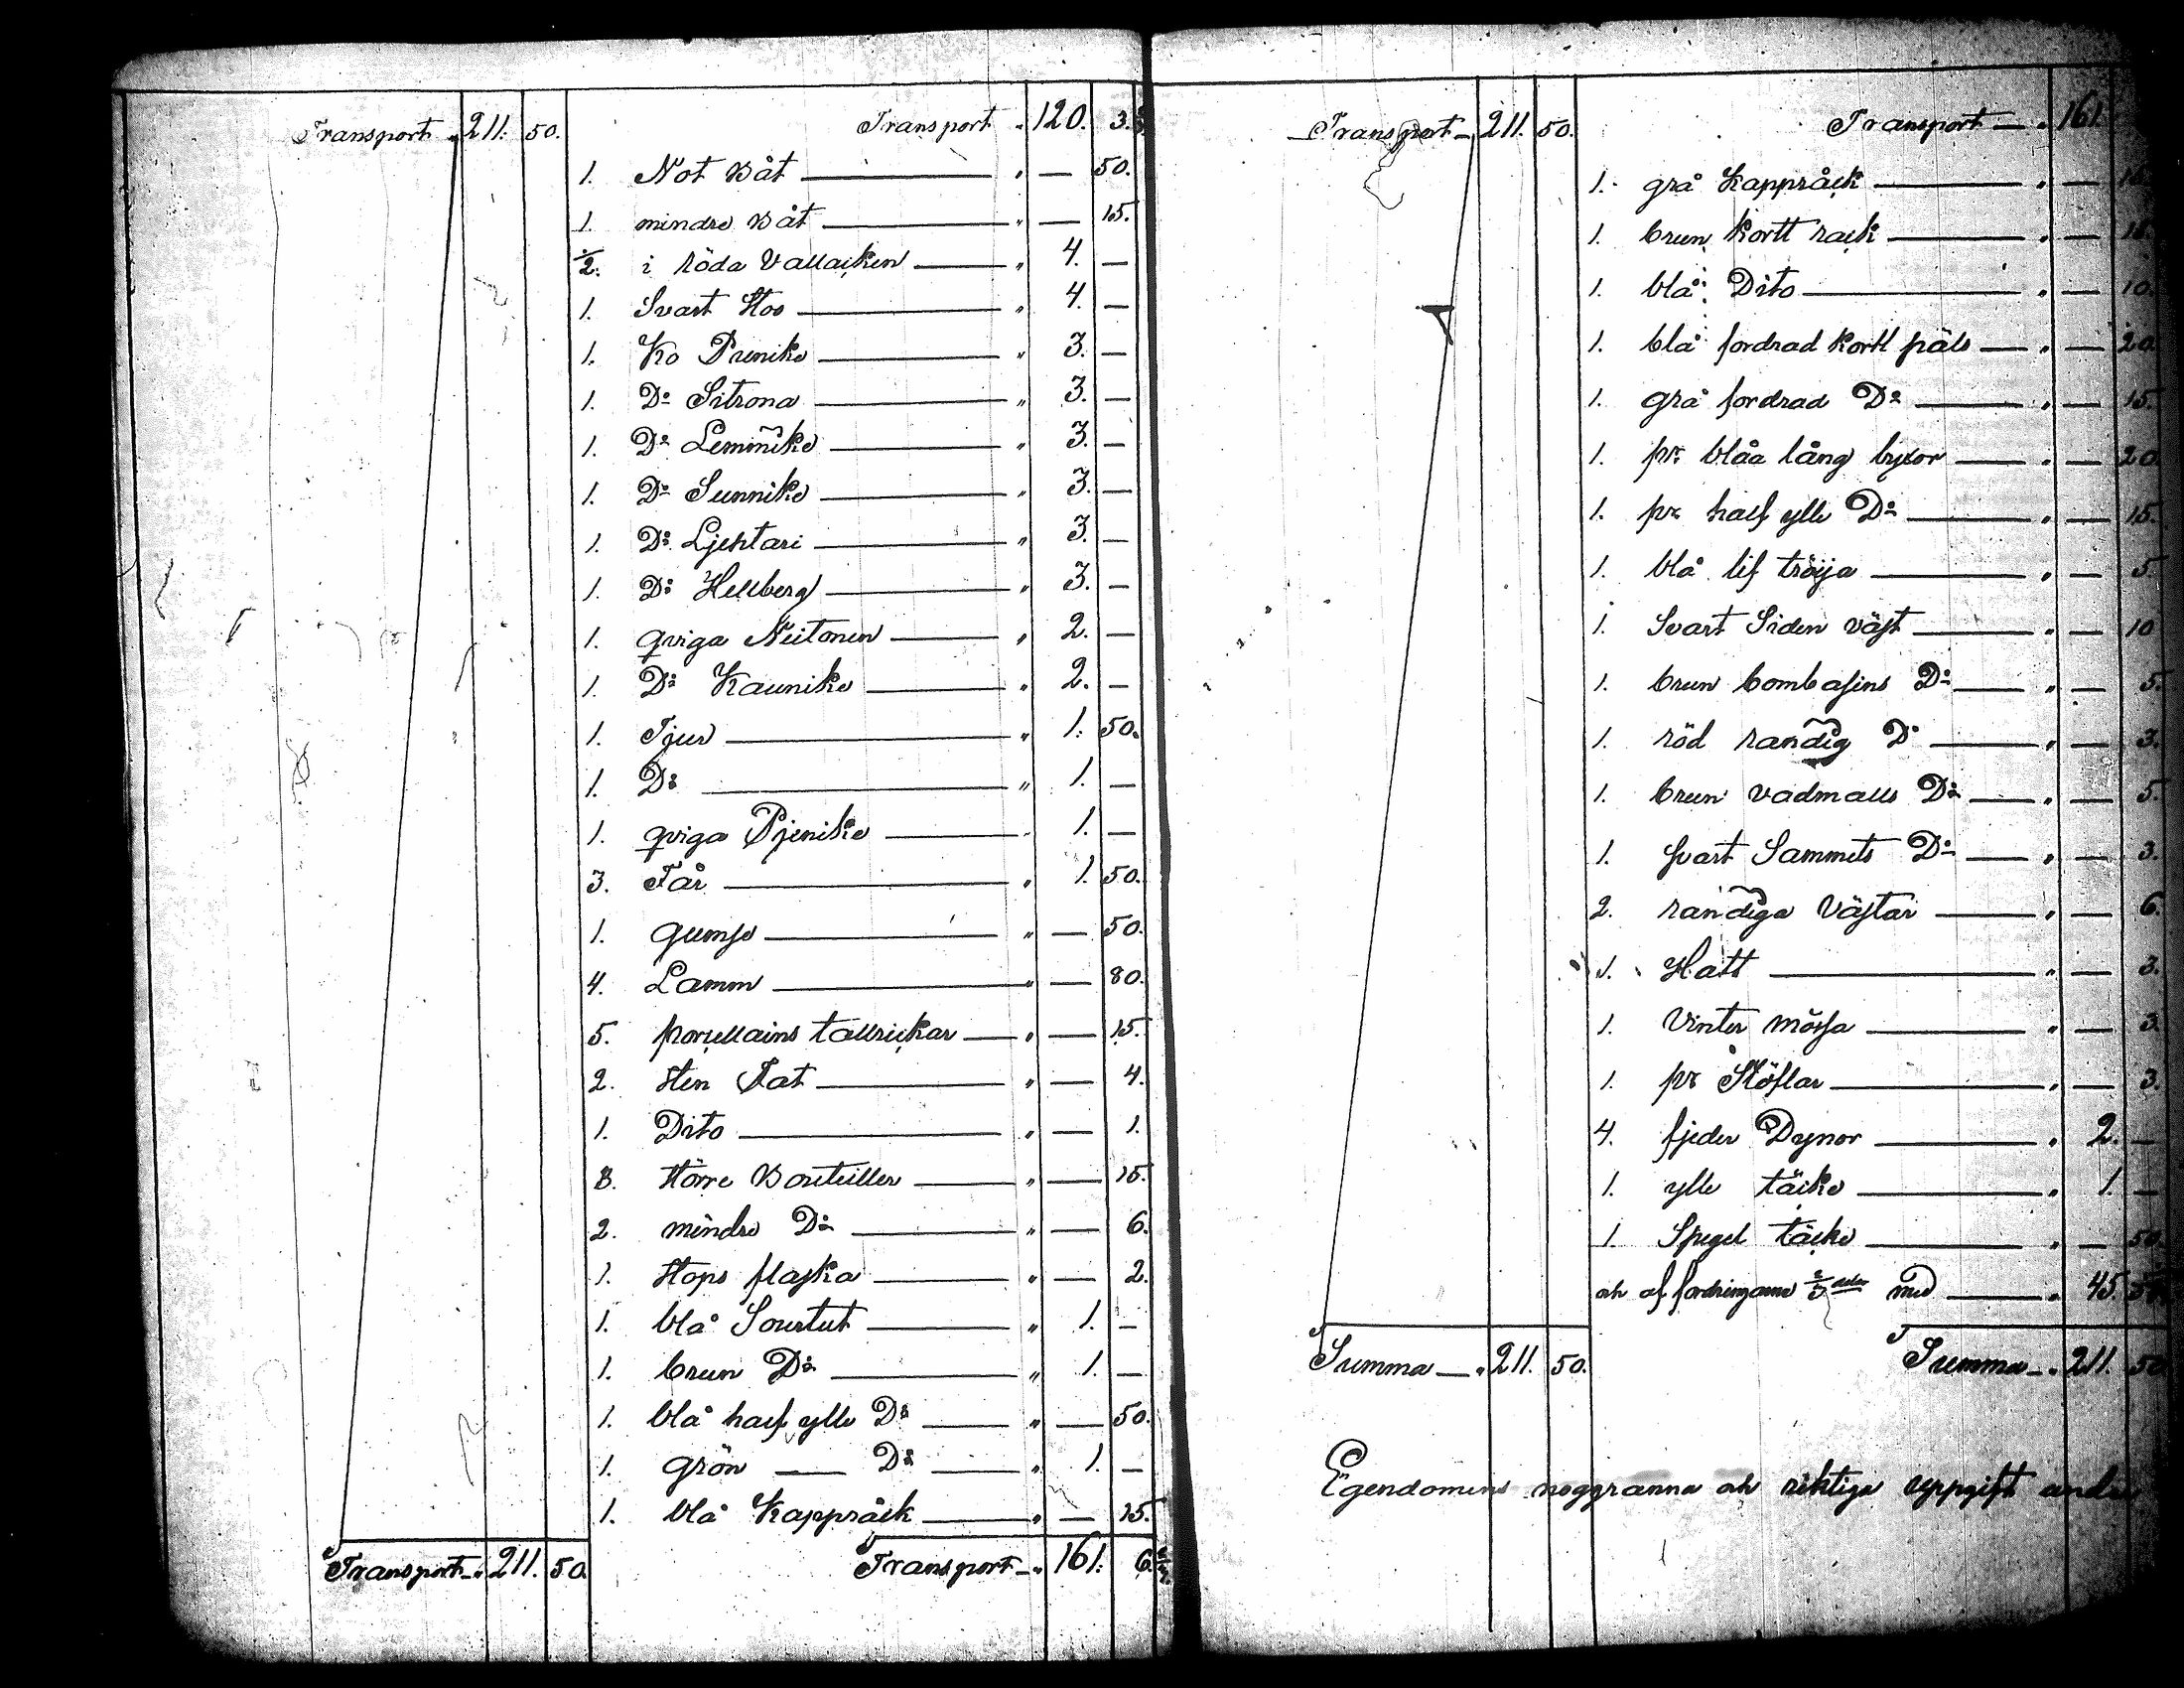 Transport „ 211. 50.
Transport „ 120. 3.
1. Not Båt — „ — 50.
1. mindre Båt — „ — 15.
1/2. i röda Vallacken — „ 4. —
1. Svart Sto — „ 4. —
1. Ko Prenike — „ 3. —
1. Do Sitrona — „ 3. —
1. Do Lemmike — „ 3. —
1. Do Sunnike — „ 3. —
1. Do Ljehtari — „ 3. —
1. Do Hellberg — „ 3. —
1. qviga Neitonen — „ 2. —
1. Do Kaunike — „ 2. —
1. Tjur — „ 1. 50.
1. Do — „ 1. —
1. qviga Pjenike — 1. —
3. Får — „ 1. 50.
1. gumse — „ — 50.
4. Lamm — „ — 80.
5. porcellains tallrickar — „ — 15.
2. Sten Fat — „ — 4.
1. Dito — „ — 1.
8. Större Bouteiller — „ — 15.
2. mindre Do — „ — 6.
1. Stops flaska — „ — 2.
1. blå Sourtut — „ 1. —
1. brun Do — „ 1. —
1. blå half ylle Do — „ — 50.
1. grön — Do — „ 1. —
1. blå Kappråck — „ — 15.
Transport „ 211. 50.
Transport „ 161. 6.
Transport „ 211. 50.
Transport — „ 161.
1. grå Kappråck — „ —
1. brun kortt rack — „ —
1. blå Dito — „ — 10.
1. blå fordrad kortt päls — „ — 20.
1. grå fordrad Do — „ — 15.
1. pr. blåa lång byxor — „ — 20.
1. pr half ylle Do — „ — 15.
1. blå lif tröija — „ — 5.
1. Svart Siden väst — „ — 10
1. brun bombasins Do — „ — 5.
1. röd randig Do — „ — 3.
1. brun vadmalls Do — „ — 5.
1. svart Sammets Do — „ — 3.
2. randiga Västar — „ — 6.
1. Hatt — „ — 3.
1. Vinter mössa — „ — 3.
1. pr Stöflar — „ — 3.
4. fjeder Dynor — „ 2. —
1. ylle täcke — „ 1. —
1. Spegel täcke — „ — 50.
och af fordringarne med — „ 45.
Summa — „ 211. 50.
Summa — „ 211. 50
Egendomens noggranna och riktiga uppgift